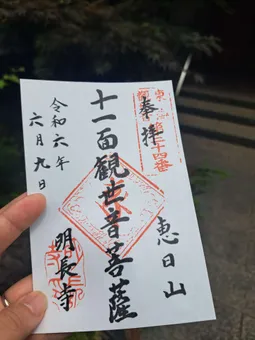 奉拝
第三十四番
恵日山
十一面観世音菩薩
明長寺
令和六年
六月九日